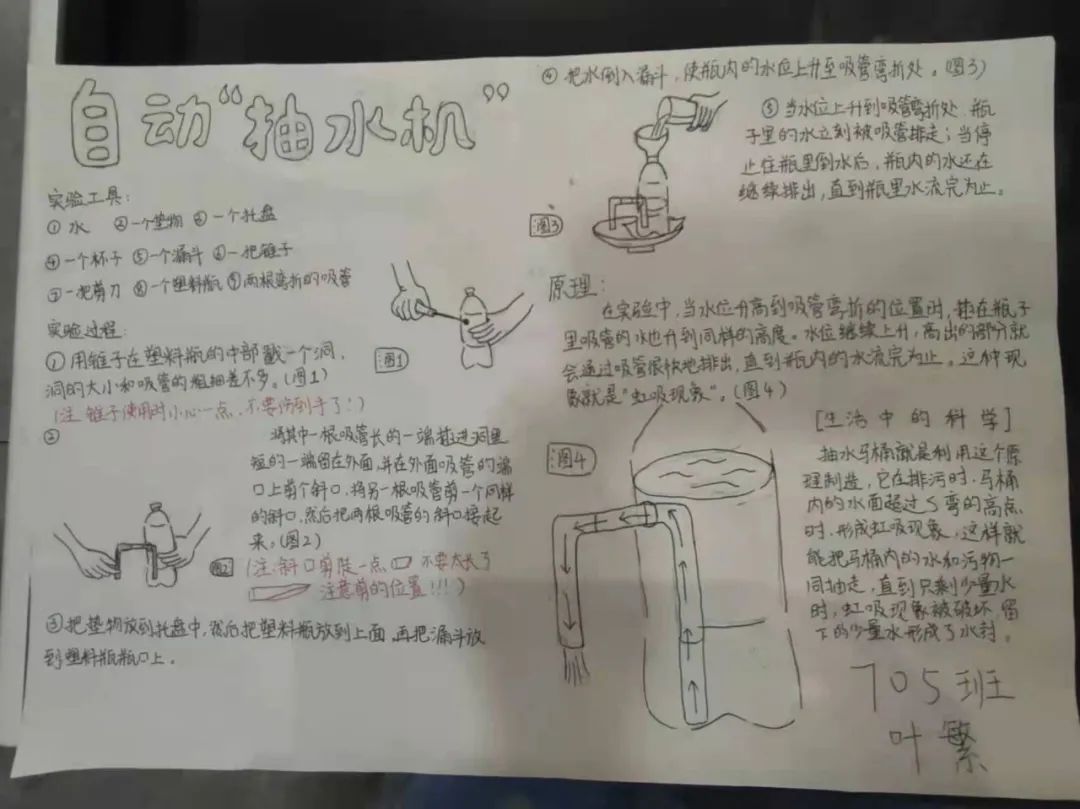 自动“抽水机”
实验工具：
①水 ②一个垫物 ③一个托盘
④一个杯子 ⑤一个漏斗 ⑥一把锥子
⑦一把剪刀 ⑧一个塑料瓶 ⑨两根弯折的吸管
实验过程：
①用锥子在塑料瓶的中部戳一个洞，
洞的大小和吸管的粗细差不多。(图1)
(注 锥子使用时小心一点，不要伤到手了！)
图1
②
将其中一根吸管长的一端插进洞里
短的一端留在外面，并在外面吸管的端
口上剪个斜口，将另一根吸管剪一个同样
的斜口，然后把两根吸管的斜口接起
来，(图2)
图2
(注：斜口剪陡一点 不要太长了
注意剪的位置!!!)
③把垫物放到托盘中，然后把塑料瓶放到上面 再把漏斗放
到塑料瓶瓶口上。
④把水倒入漏斗，使瓶内的水位上升至吸管弯折处。(图3)
⑤当水位上升到吸管弯折处，瓶
子里的水立刻被吸管排走；当停
止往瓶里倒水后，瓶内的水还在
继续排出，直到瓶里水流完为止。
图3
原理：
在实验中，当水位升高到吸管弯折的位置时，插在瓶子
里吸管的水也升到同样的高度。水位继续上升，高出的部分就
会通过吸管很快地排出，直到瓶内的水流完为止。这种现
象就是“虹吸现象”。(图4)
图4
[生活中的科学]
抽水马桶就是利用这个原
理制造，它在排污时，马桶
内的水面超过S弯的高点
时，形成虹吸现象，这样就
能把马桶内的水和污物一
同抽走，直到只剩少量水
时，虹吸现象被破坏，留
下的少量水形成了水封。
705班
叶繁